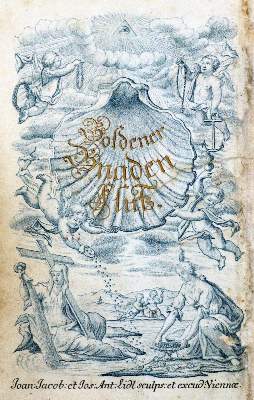 Goldener
Gnaden
Fluß.
Joan: Jacob: et Jos: Ant: Eidl sculps: et excud: Viennæ.